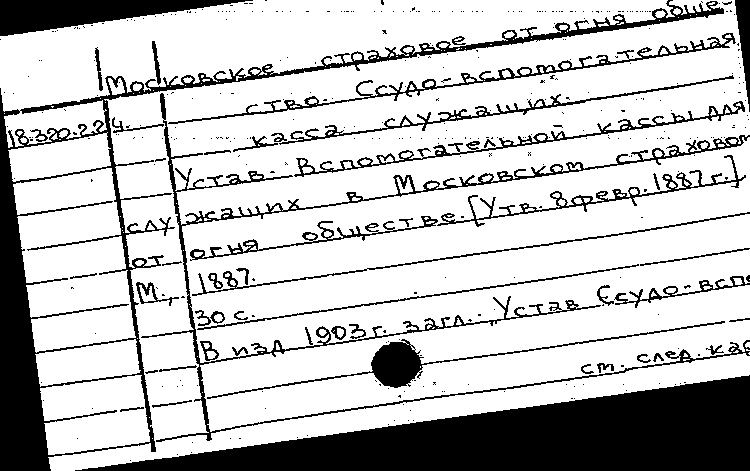 Московское страховое от огня обще-
18.320.2.24. ство. Ссудо-вспомогательная
касса служащих.
Устав Вспомогательной кассы для
служащих в Московском страховом
от огня обществе. [Утв. 8 февр. 1887 г.]
М., 1887.
30 с.
В изд 1903 г. загл.: „Устав Ссудо-вспо
ст. след. кар